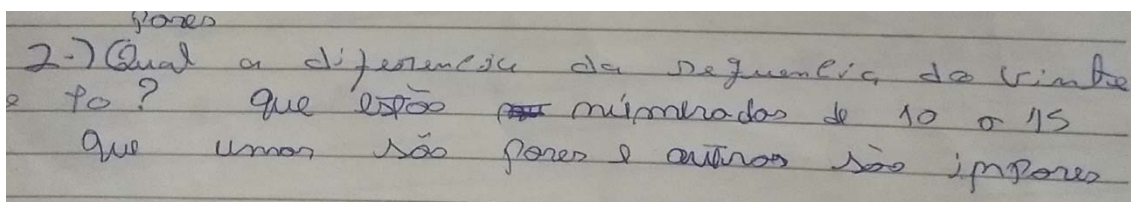 pares
2-) Qual a diferencia da sequencia do
to? que estão númerados de 10 a 15
que umas são pares e outros são impares